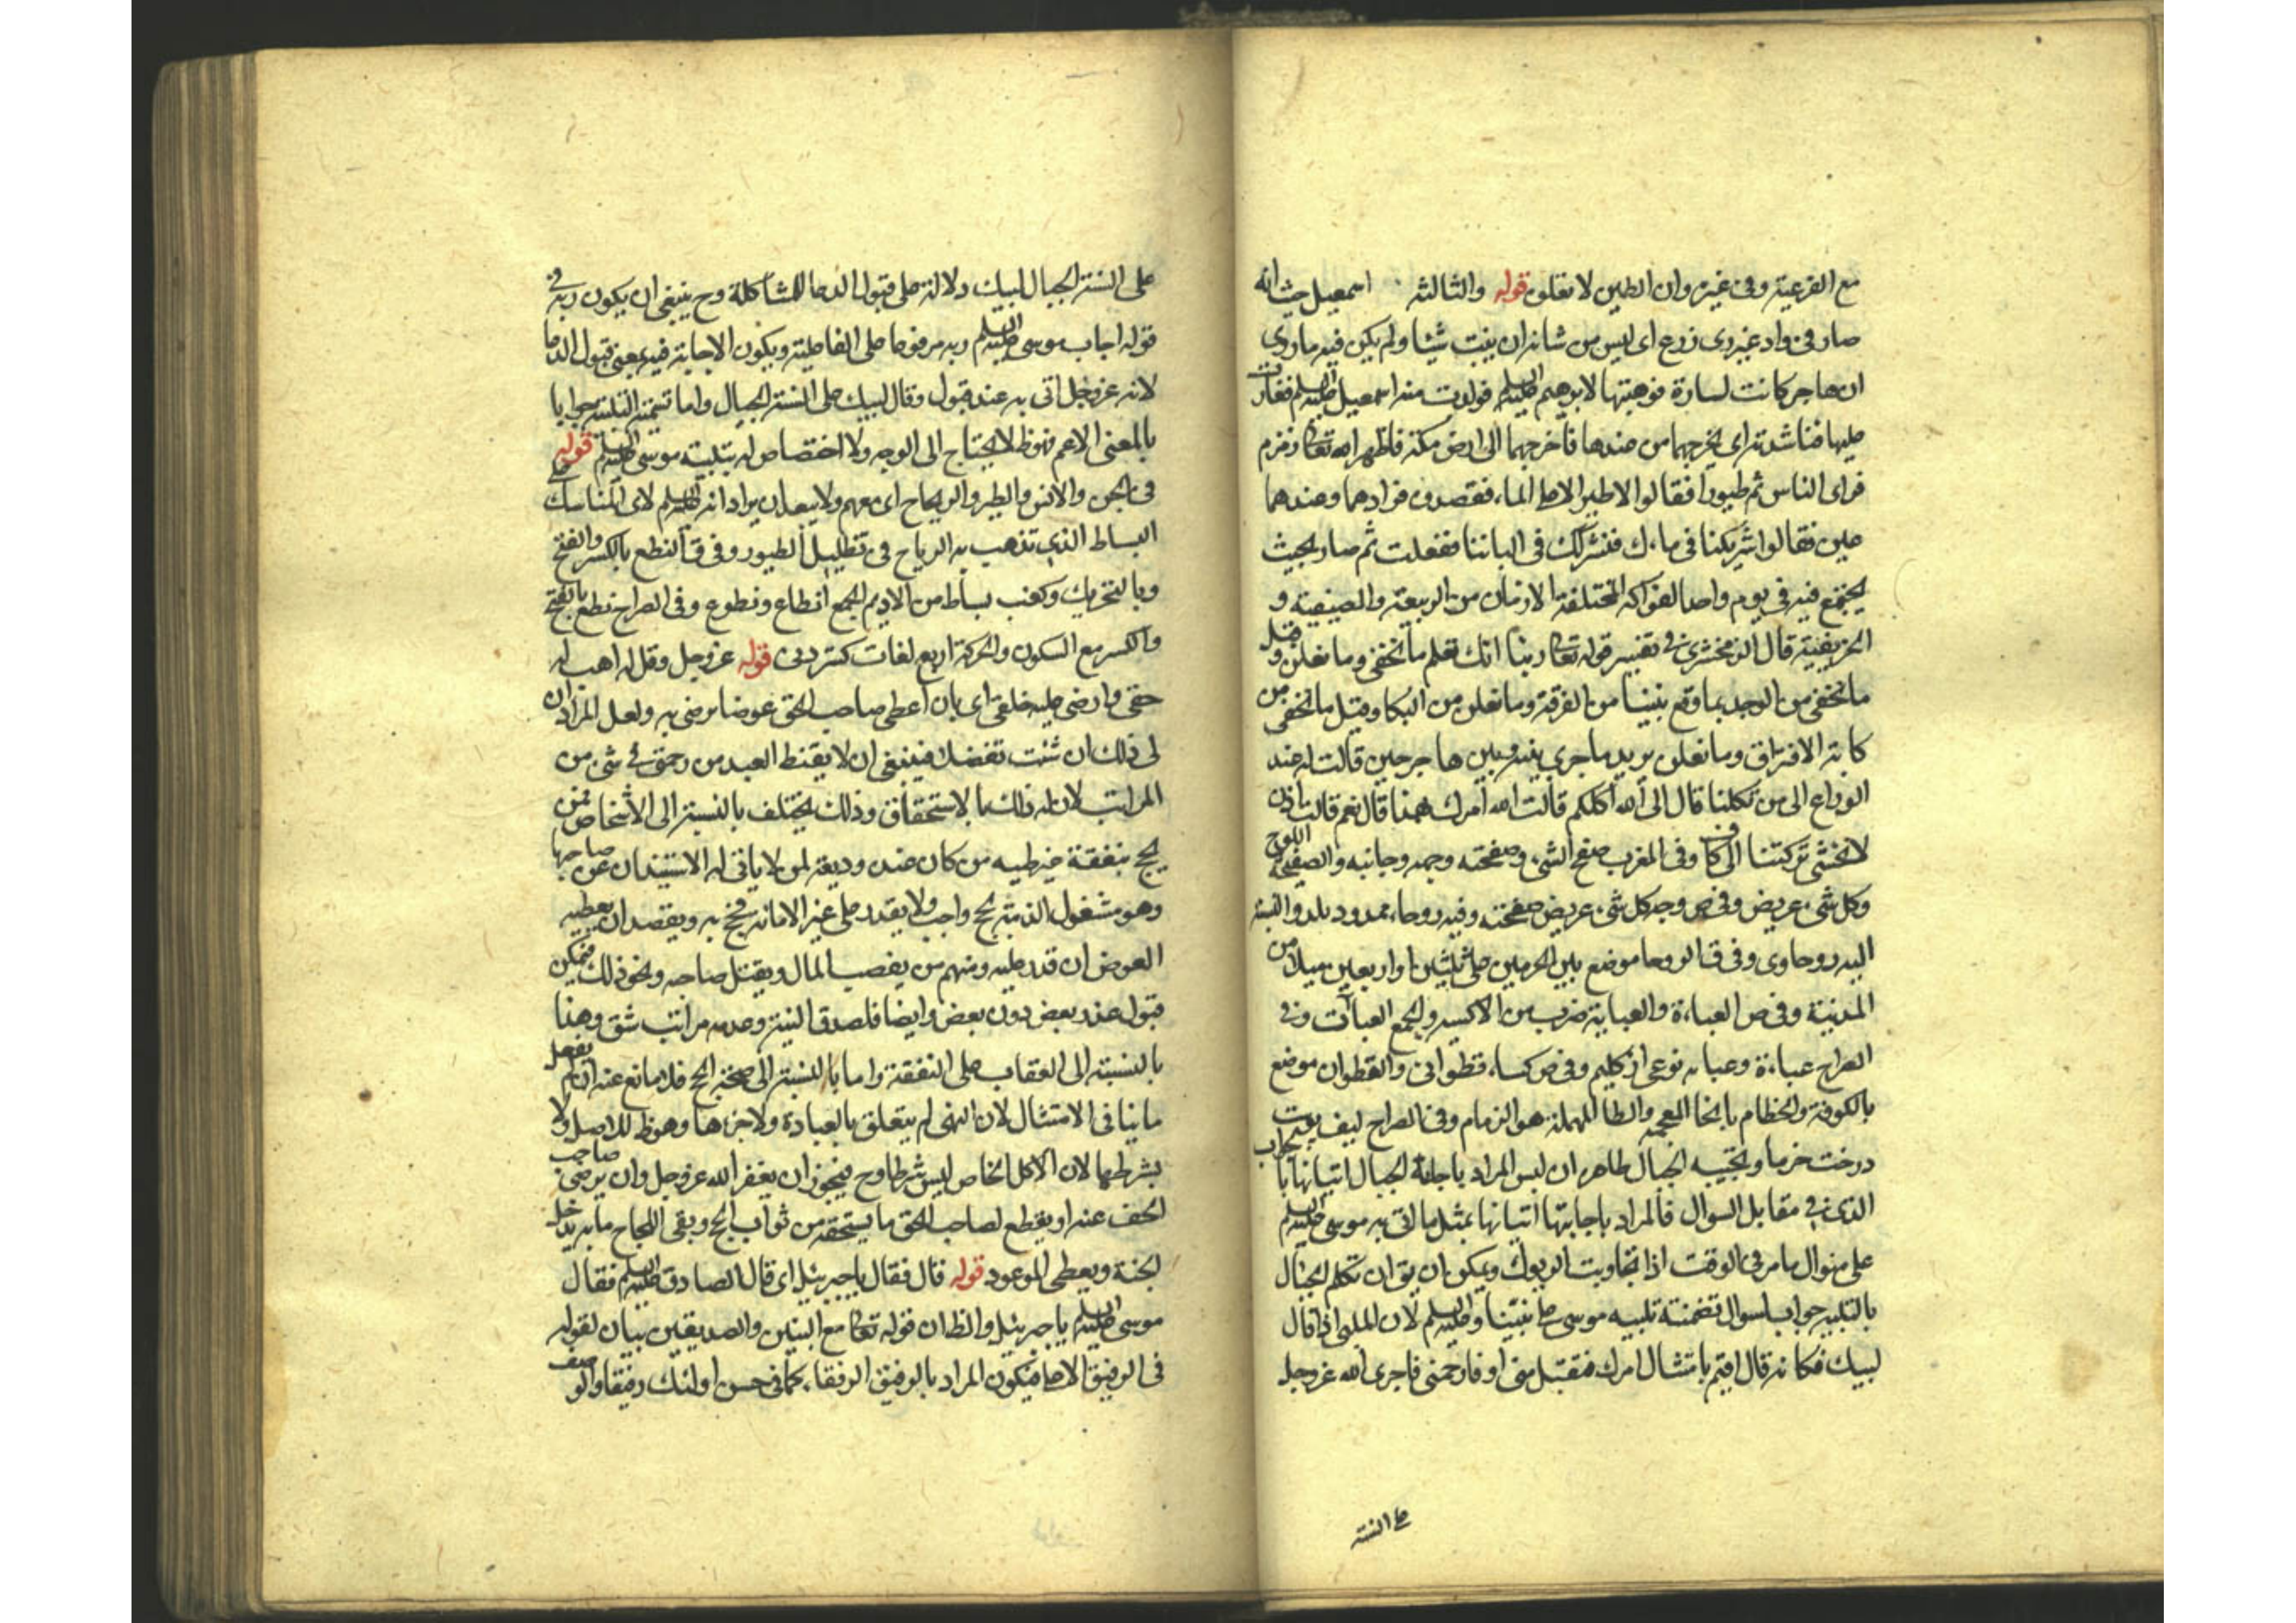 مع الفرعية وفي غيره وان الطين لا تعلق قوله والثالثة اسمعيل حيث انه
صار في واد غير ذي زرع اى ليس من شانه ان ينبت شيئا ولم يكن فيه ما روى
ان هاجر كانت لسارة فوهبتها لابرهيم عليه السلم فولدت منه اسمعيل عليه السلم فغارت
عليها فناشدته اى يخرجهما من عندها فاخرجهما الى ارض مكة فاظهر الله تعالى زمزم
فراى الناس ثم طيورا فقالوا لا طير الا على الماء فقصدوه فراوهما وعندهما
عين فقالوا اشركينا في ماءك فنشركك في الباننا ففعلت ثم صار بحيث
يجتمع فيه في يوم واحد الفواكه المختلفة الازمان من الربيعية والصيفية و
الخريفية قال الزمخشرى في تفسير قوله تعالى ربنا انك تعلم ما نخفى وما نعلن وقيل
ما نخفى من الوجد بما وقع بيننا من الفرقة وما نعلن من البكا وقيل ما نخفى من
كابة الافتراق وما نعلن يريد ما جرى بينه وبين هاجر حين قالت له عند
الوداع الى من تكلنا قال الى الله اكلكم قالت الله امرك بهذا قال نعم قالت اذن
لا نخشى تركتنا الى كاف وفي المغرب صفح الشىء وصفحته وجهه وجانبه والصفيحة اللوح
وكل شىء عريض وفي ص وجه كل شىء عريض صفحته وفيه روحاء ممدود بلد والنسبة
اليه روحاوى وفي ق الروحا موضع بين الحرمين على ثلثين او اربعين ميلا من
المدينة وفي ص العباءة والعباية ضرب من الاكسية والجمع العباآت وفي
الصراح عباءة وعبايه نوعى از كليم وفي ص كساء قطوانى والقطوان موضع
بالكوفة والخطام بالخا المعجمة والطا المهملة هو الزمام وفي الصراح ليف پوست
درخت خرما وتجيبه الجبال ظاهر ان ليس المراد باجابة الجبال اتيانها بالجواب
الذى في مقابل السوال فالمراد باجابتها اتيانها بمثل ما اتى به موسى عليه السلم
على منوال ما مر في الوقت اذا تجاوبت الربوك ويمكن ان يق ان تكلم الجبال
بالتلبية جواب لسوال تضمنته تلبيه موسى على نبينا وعليه السلم لان الملبى اذا قال
لبيك فكانه قال اقيم بامتثال امرك فتقبل منى او فارحمنى فاجرى الله عز وجل
على السنة
على السنة الجبال لبيك دلالة على قبول الدعا للمشاكلة وح ينبغى ان يكون ربه في
قوله اجاب موسى عليه السلم ربه مرفوعا على الفاعلية ويكون الاجابة فيه بمعنى قبول الدعا
لانه عز وجل اتى به عند قبول وقال لبيك على السنة الجبال واما تسمية التلبية جوابا
بالمعنى الاعم فهو ظ لا يحتاج الى الوجه ولا اختصاص له بتلبية موسى عليه السلم قوله
في الجن والانس والطير والرياح اى معهم ولا يبعد ان يراد انه عليه السلم لاى المناسك على
البساط الذى تذهب به الرياح في تظليل الطيور وفي ق النطع بالكسر والفتح
وبالتحريك وكعنب بساط من الاديم الجمع انطاع ونطوع وفي الصراح نطع بالفتح
والكسر مع السكون والحركة اربع لغات كستردنى قوله عز وجل وقل له اهب له
حقى وارضى عليه خلقى اى بان اعطى صاحب الحق عوضا يرضى به ولعل المراد ان
لى ذلك ان شئت تفضلا فينبغى ان لا يقنط العبد من رحمتى في شىء من
المراتب لا ان له ذلك بالاستحقاق وذلك يختلف بالنسبة الى الاشخاص فمن
يحج بنفقة غير طيبه من كان عنده وديعة لمن لا ياتى له الاستيذان عن صاحبها
وهو مشغول الذمة بحج واجب ولا يقدر على غير الامانه فيحج به ويقصد ان يعطيه
العوض ان قدر عليه ومنهم من يغصب المال ويقتل صاحبه ونحو ذلك فيمكن
قبول عذر بعض دون بعض وايضا فلصدق النية وعدمه مراتب شتى وهذا
بالنسبة الى العقاب على النفقة واما بالنسبة الى صحة الحج فلا مانع عنه ان لم يفعل
ما ينافى الامتثال لان النهى لم يتعلق بالعبادة ولا جزءها وهو ظ للاصل ولا
بشرطها لان الاكل الخاص ليس شرطا وح فيجوز ان يغفر الله عز وجل وان يرضى صاحب
الحق عنه او يقطع لصاحب الحق ما يستحقه من ثواب الحج ويبقى للحاج ما به يدخل
الجنة ويعطى الموعود قوله قال فقال يا جبرئيل اى قال الصادق عليه السلم فقال
موسى عليه السلم يا جبرئيل والظ ان قوله تعالى مع النبيين والصديقين بيان لقوله
في الرفيق الاعلى فيكون المراد بالرفيق الرفقاء كما في حسن اولئك رفيقا والوصف